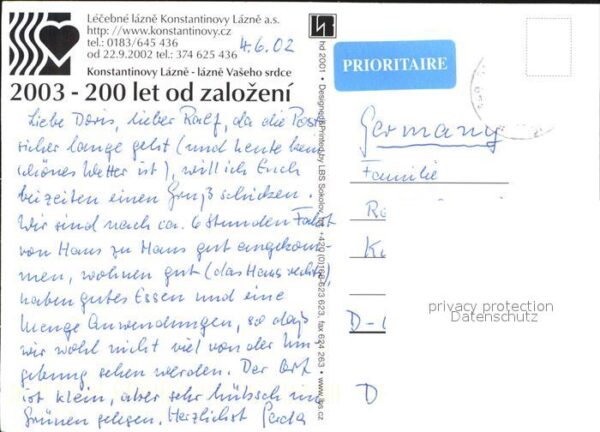 Léčebné lázně Konstantinovy Lázně a.s.
http://www.konstantinovy.cz
tel.: 0183/645 436
od 22.9.2002 tel.: 374 625 436
4.6.02
Konstantinovy Lázně - lázně Vašeho srdce
2003 - 200 let od založení
Liebe Doris, lieber Ralf, da die Post
sicher lange geht (und heute kein
schönes Wetter ist), will ich Euch
beizeiten einen Gruß schicken.
Wir sind nach ca. 6 Stunden Fahrt
von Haus zu Haus gut angekom-
men, wohnen gut (das Haus rechts),
haben gutes Essen und eine
Menge Anwendungen, so daß
wir wohl nicht viel von der Um
gebung sehen werden. Der Ort
ist klein, aber sehr hübsch im
Grünen gelegen. Herzlichst
hd 2001 • Designed & Printed by LBS Sokolov, tel. +420 (0)168 623 623, fax 624 263 • www.lbs.cz
PRIORITAIRE
Germany
Familie
D
privacy protection
Datenschutz